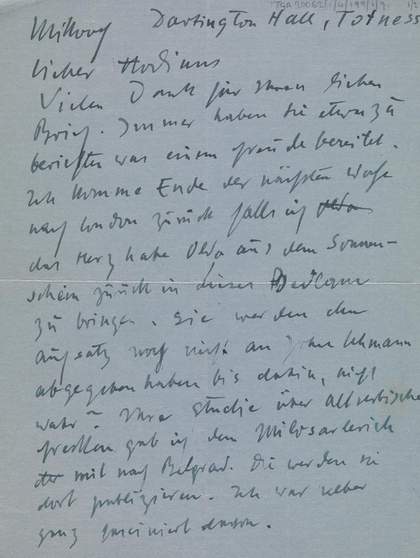 TGA 20062/1/4/199/1/9 1/2
Mittwoch Dartington Hall, Totness
Lieber Hodinus
Vielen Dank für Ihren lieben
Brief. Immer haben Sie etwas zu
berichten was einem Freude bereitet.
Ich komme Ende der nächsten Woche
nach London zurück falls ich
das Herz habe Olda aus dem Sonnen-
schein zurück in dieses Bedlam
zu bringen. Sie werden den
Aufsatz noch nicht an John Lehmann
abgegeben haben bis dahin, nicht
wahr? Ihre Studie über altserbische
Fresken gab ich dem
mit nach Belgrad. Die werden sie
dort publizieren. Ich war selber
ganz fasciniert davon.